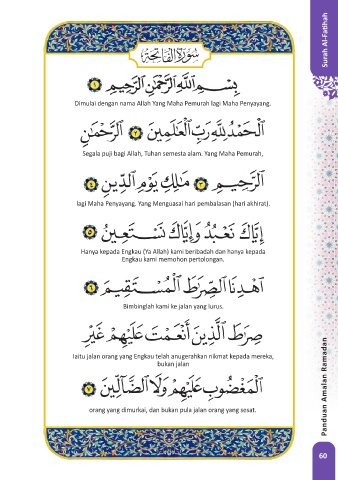 Surah Al-Fatihah
سُورَةُ الْفَاتِحَةِ
بِسْمِ اللَّهِ الرَّحْمَٰنِ الرَّحِيمِ ١
Dimulai dengan nama Allah Yang Maha Pemurah lagi Maha Penyayang.
الْحَمْدُ لِلَّهِ رَبِّ الْعَالَمِينَ ٢ الرَّحْمَٰنِ
Segala puji bagi Allah, Tuhan semesta alam. Yang Maha Pemurah,
الرَّحِيمِ ٣ مَالِكِ يَوْمِ الدِّينِ ٤
lagi Maha Penyayang. Yang Menguasai hari pembalasan (hari akhirat).
إِيَّاكَ نَعْبُدُ وَإِيَّاكَ نَسْتَعِينُ ٥
Hanya kepada Engkau (Ya Allah) kami beribadah dan hanya kepada
Engkau kami memohon pertolongan.
اهْدِنَا الصِّرَاطَ الْمُسْتَقِيمَ ٦
Bimbinglah kami ke jalan yang lurus.
صِرَاطَ الَّذِينَ أَنْعَمْتَ عَلَيْهِمْ غَيْرِ
Iaitu jalan orang yang Engkau telah anugerahkan nikmat kepada mereka,
bukan jalan
الْمَغْضُوبِ عَلَيْهِمْ وَلَا الضَّالِّينَ ٧
orang yang dimurkai, dan bukan pula jalan orang yang sesat.
Panduan Amalan Ramadan
60